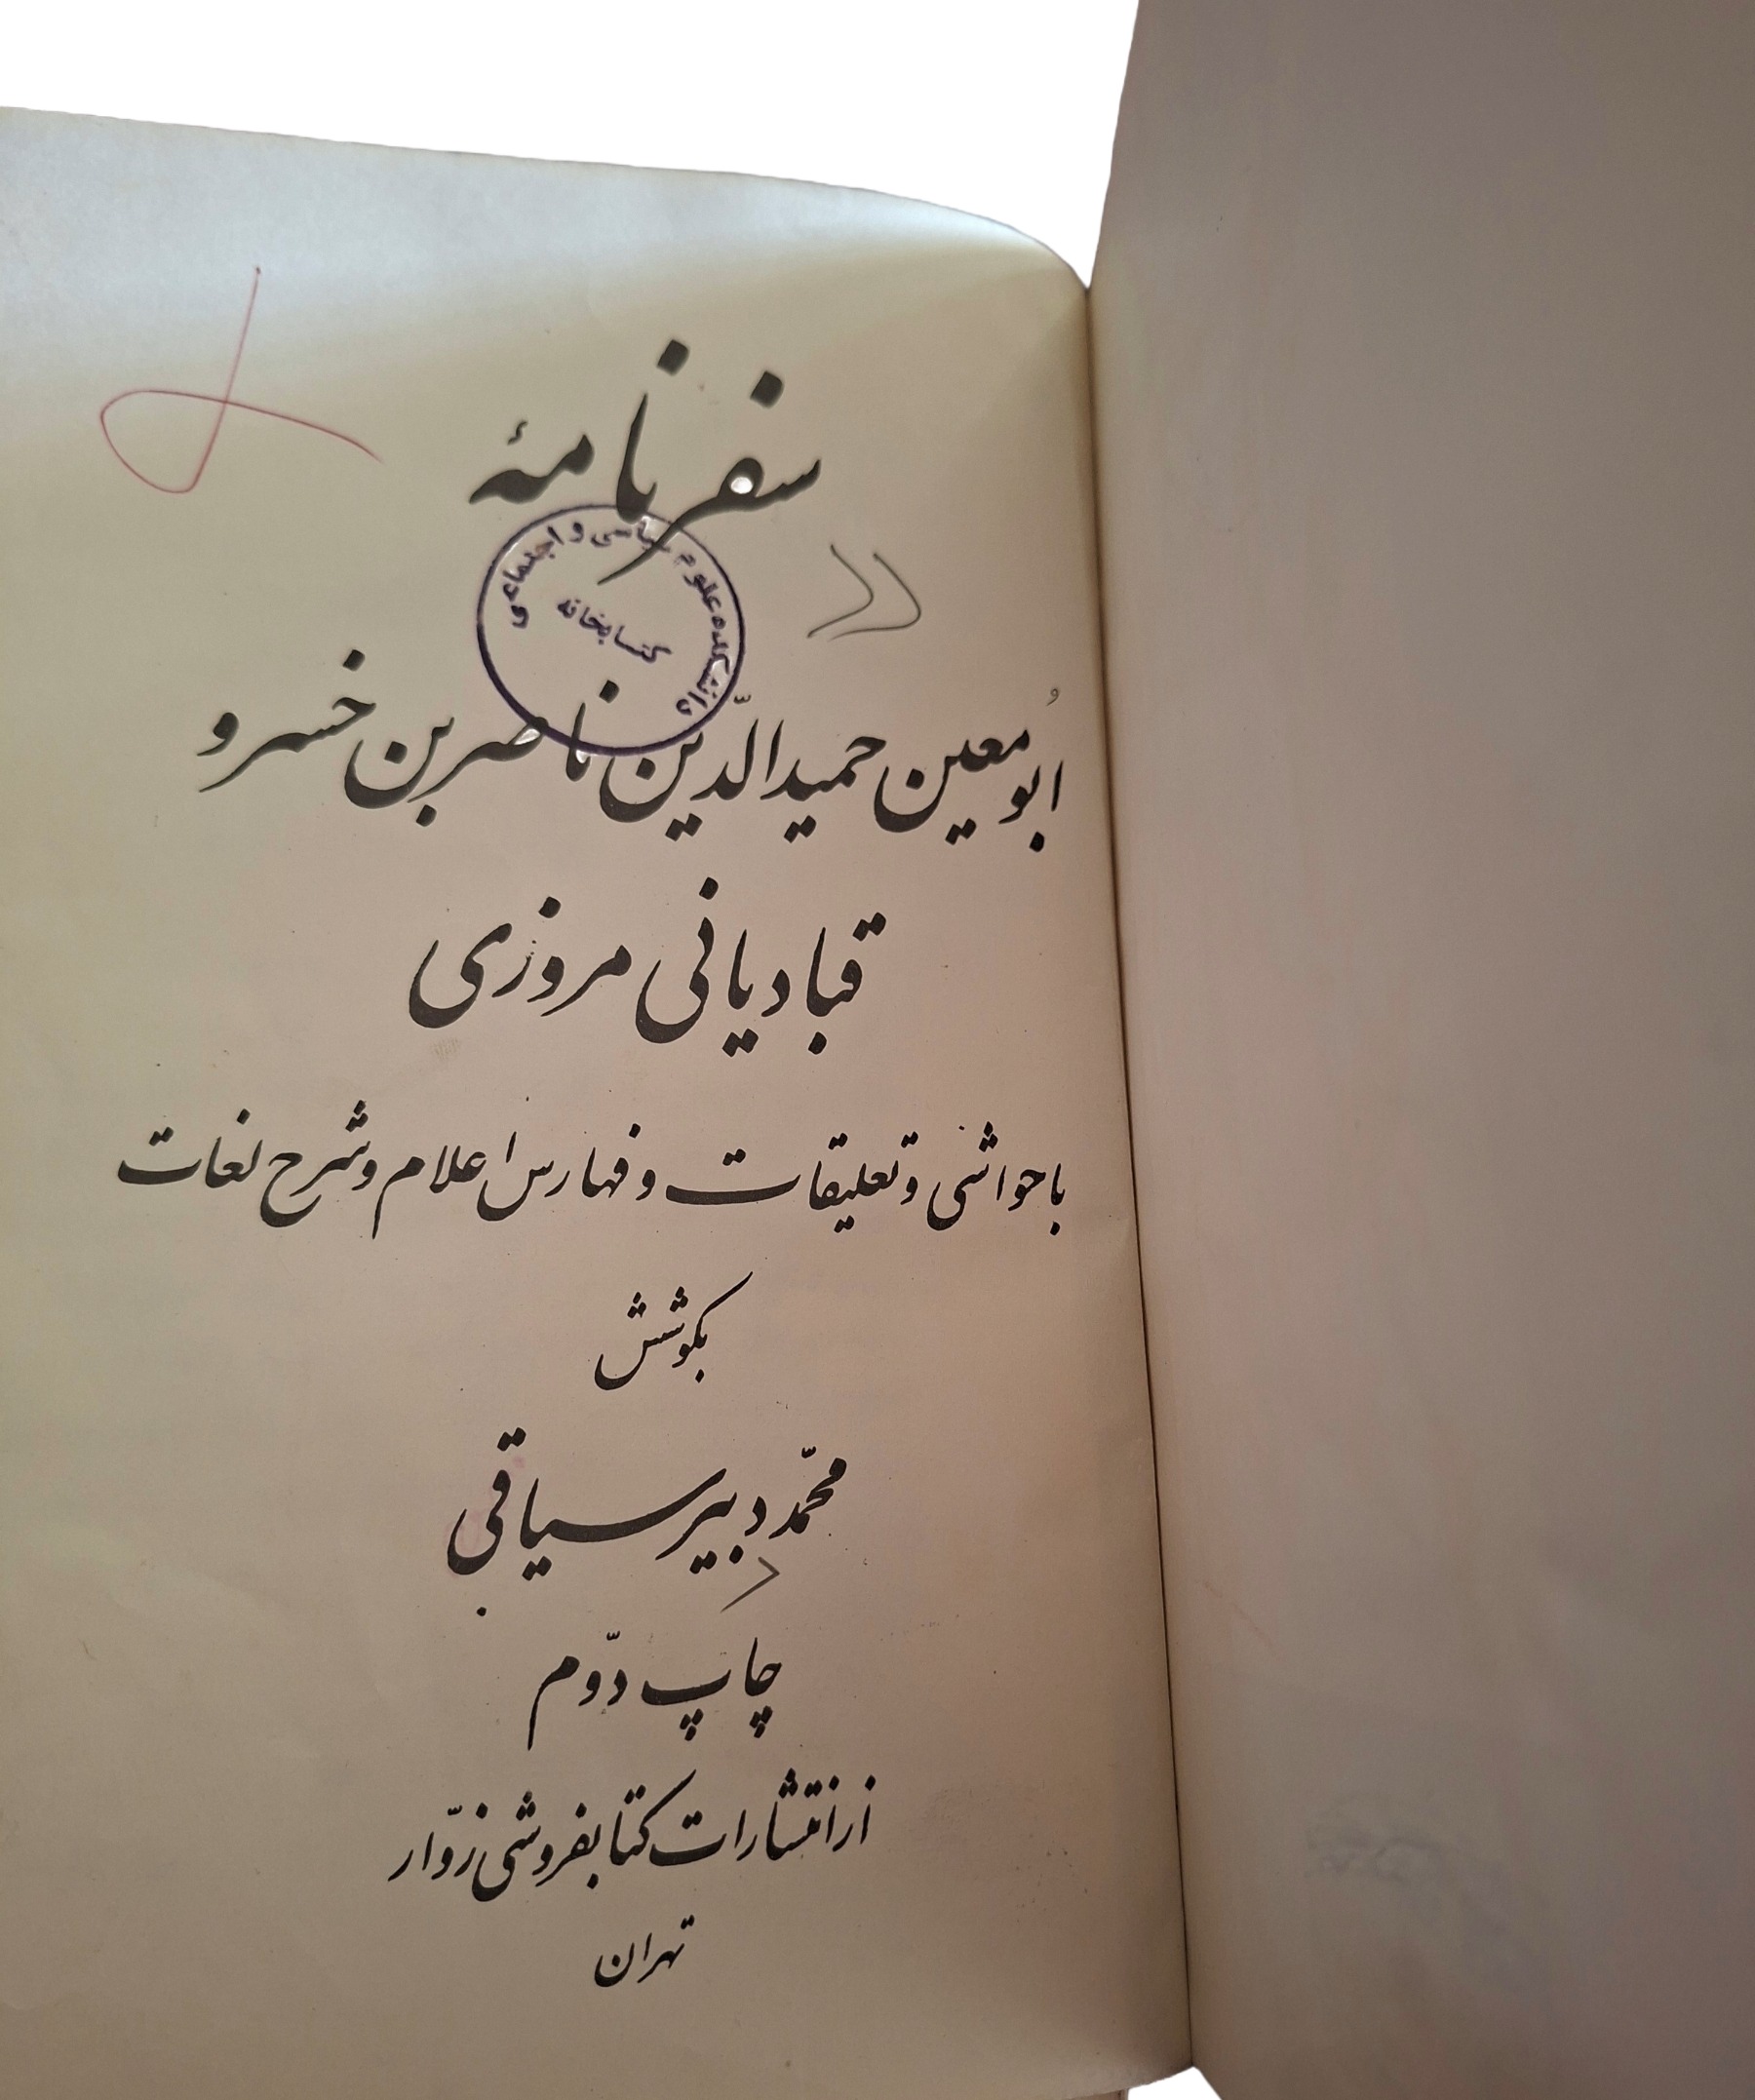 سفرنامهٔ
دانشکده علوم سیاسی و اجتماعی
کتابخانه
ابومعین حمیدالدّین ناصر بن خسرو
قبادیانی مروزی
با حواشی و تعلیقات و فهارس اعلام و شرح لغات
بکوشش
محمّد دبیرسیاقی
چاپ دوّم
از انتشارات کتابفروشی زوّار
تهران